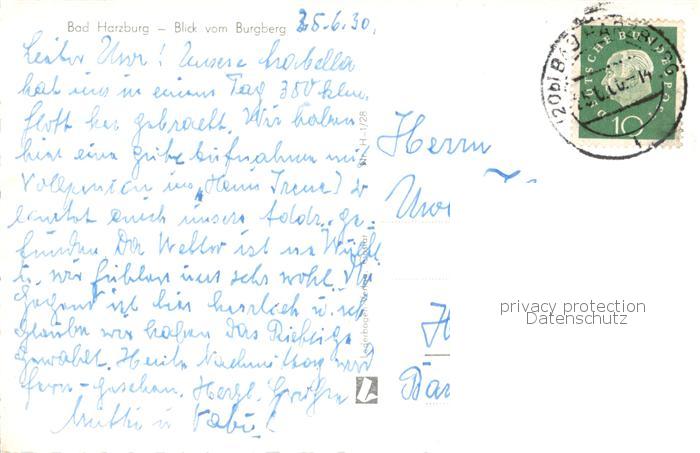 Bad Harzburg – Blick vom Burgberg
25.6.30.
Lieber Uwe! Unsere Isabella
hat uns in einem Tag 350 klm.
flott her gebracht. Wir haben
hier eine gute Aufnahme mit
Vollpension im "Haus Irene"
lautet auch unsere Addr. ge-
funden Das Wetter ist
u. wir fühlen uns sehr wohl. Die
Gegend ist hier herrlich u. ich
glaube wir haben das Richtige
gewählt. Heute Nachmittag wird
fern-gesehen. Herzl. Grüße
Mutti u. Vati!
Herrn
Uwe
H
Bar
DEUTSCHE BUNDESPOST
10
(20b) BAD HARZBURG
H-1/28
privacy protection
Datenschutz